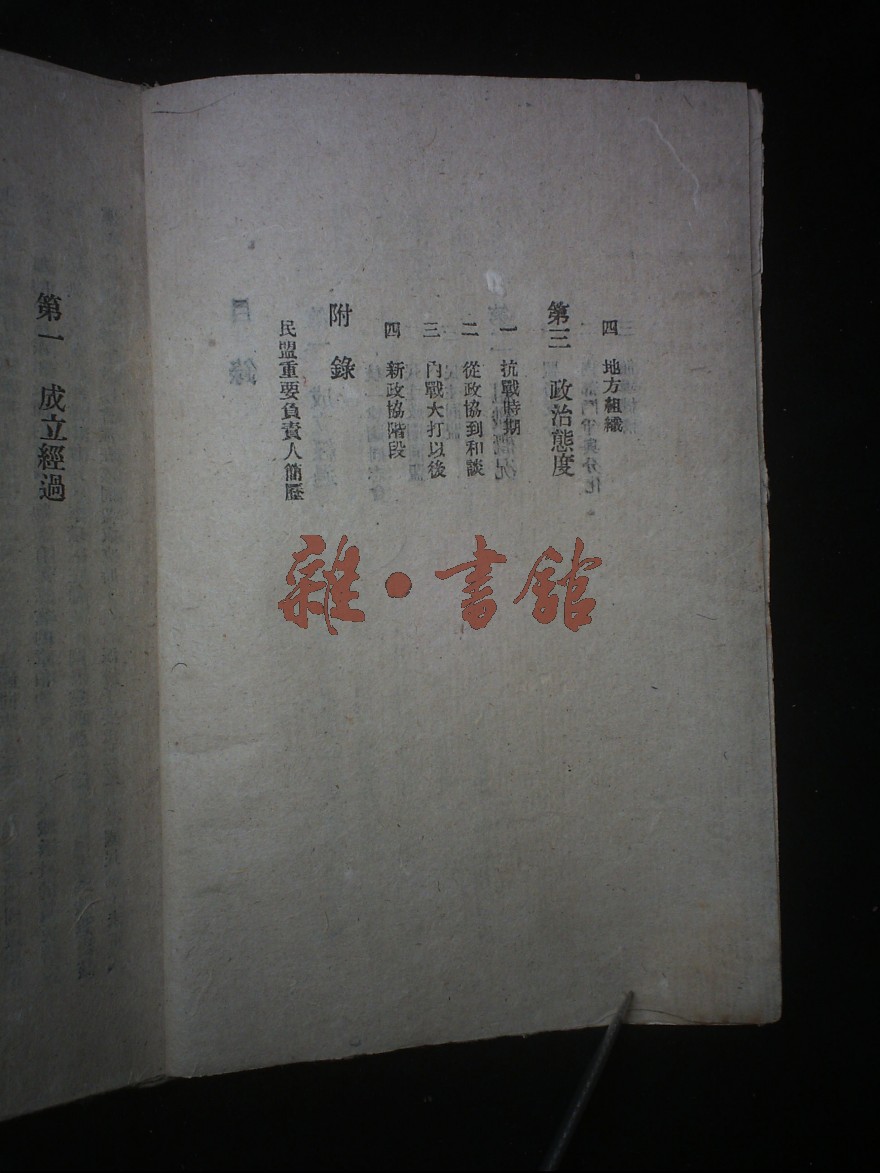 四 地方組織
第三 政治態度
一 抗戰時期
二 從政協到和談
三 內戰大打以後
四 新政協階段
附錄
民盟重要負責人簡歷
第一 成立經過
雜·書館